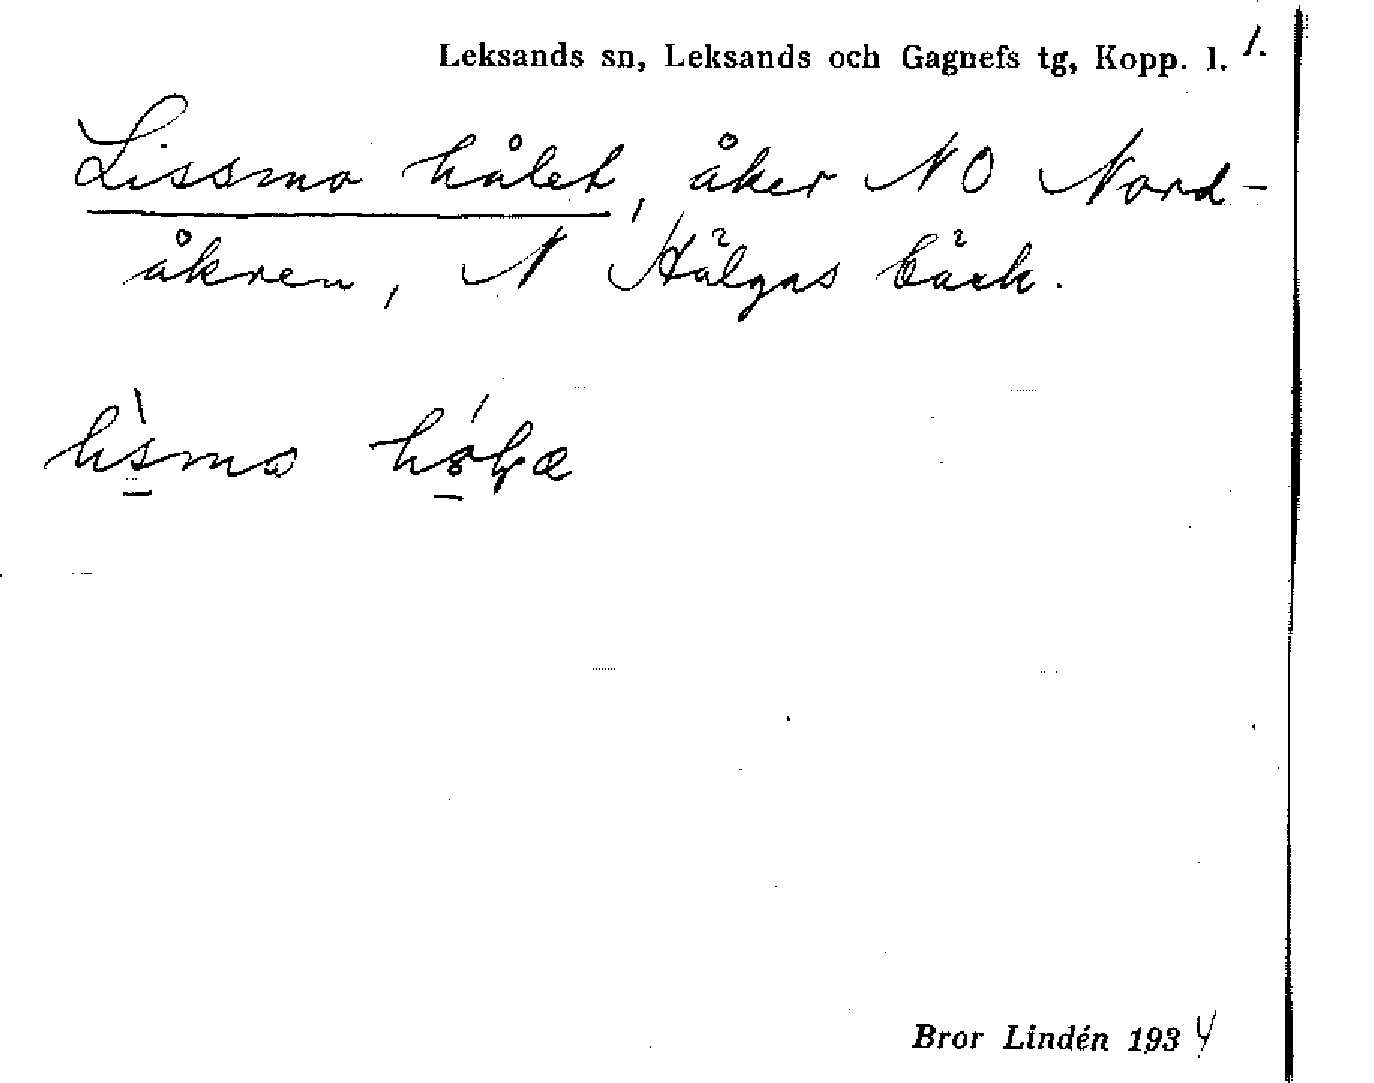 Leksands sn, Leksands och Gagnefs tg, Kopp. l. 1.
Lissmo hålet, åker NO Nord-
åkren, N Hälgas bäck.
Bror Lindén 1934